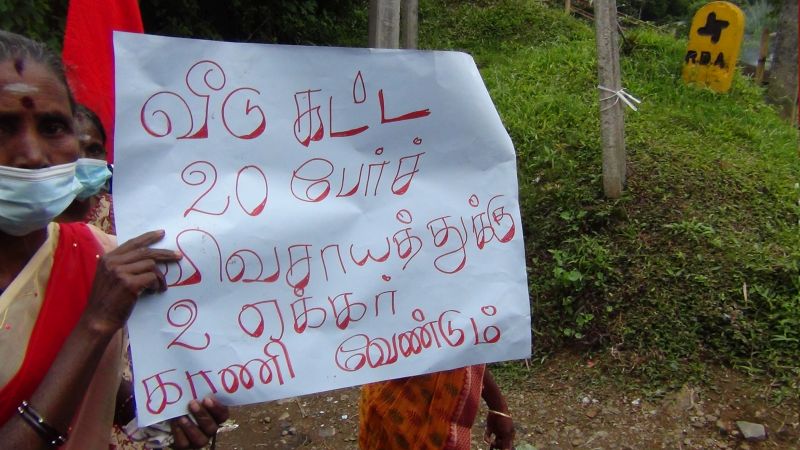 வீடு கட்ட
20 பேர்ச்
விவசாயத்துக்கு
2 ஏக்கர்
காணி வேண்டும்
R.D.A